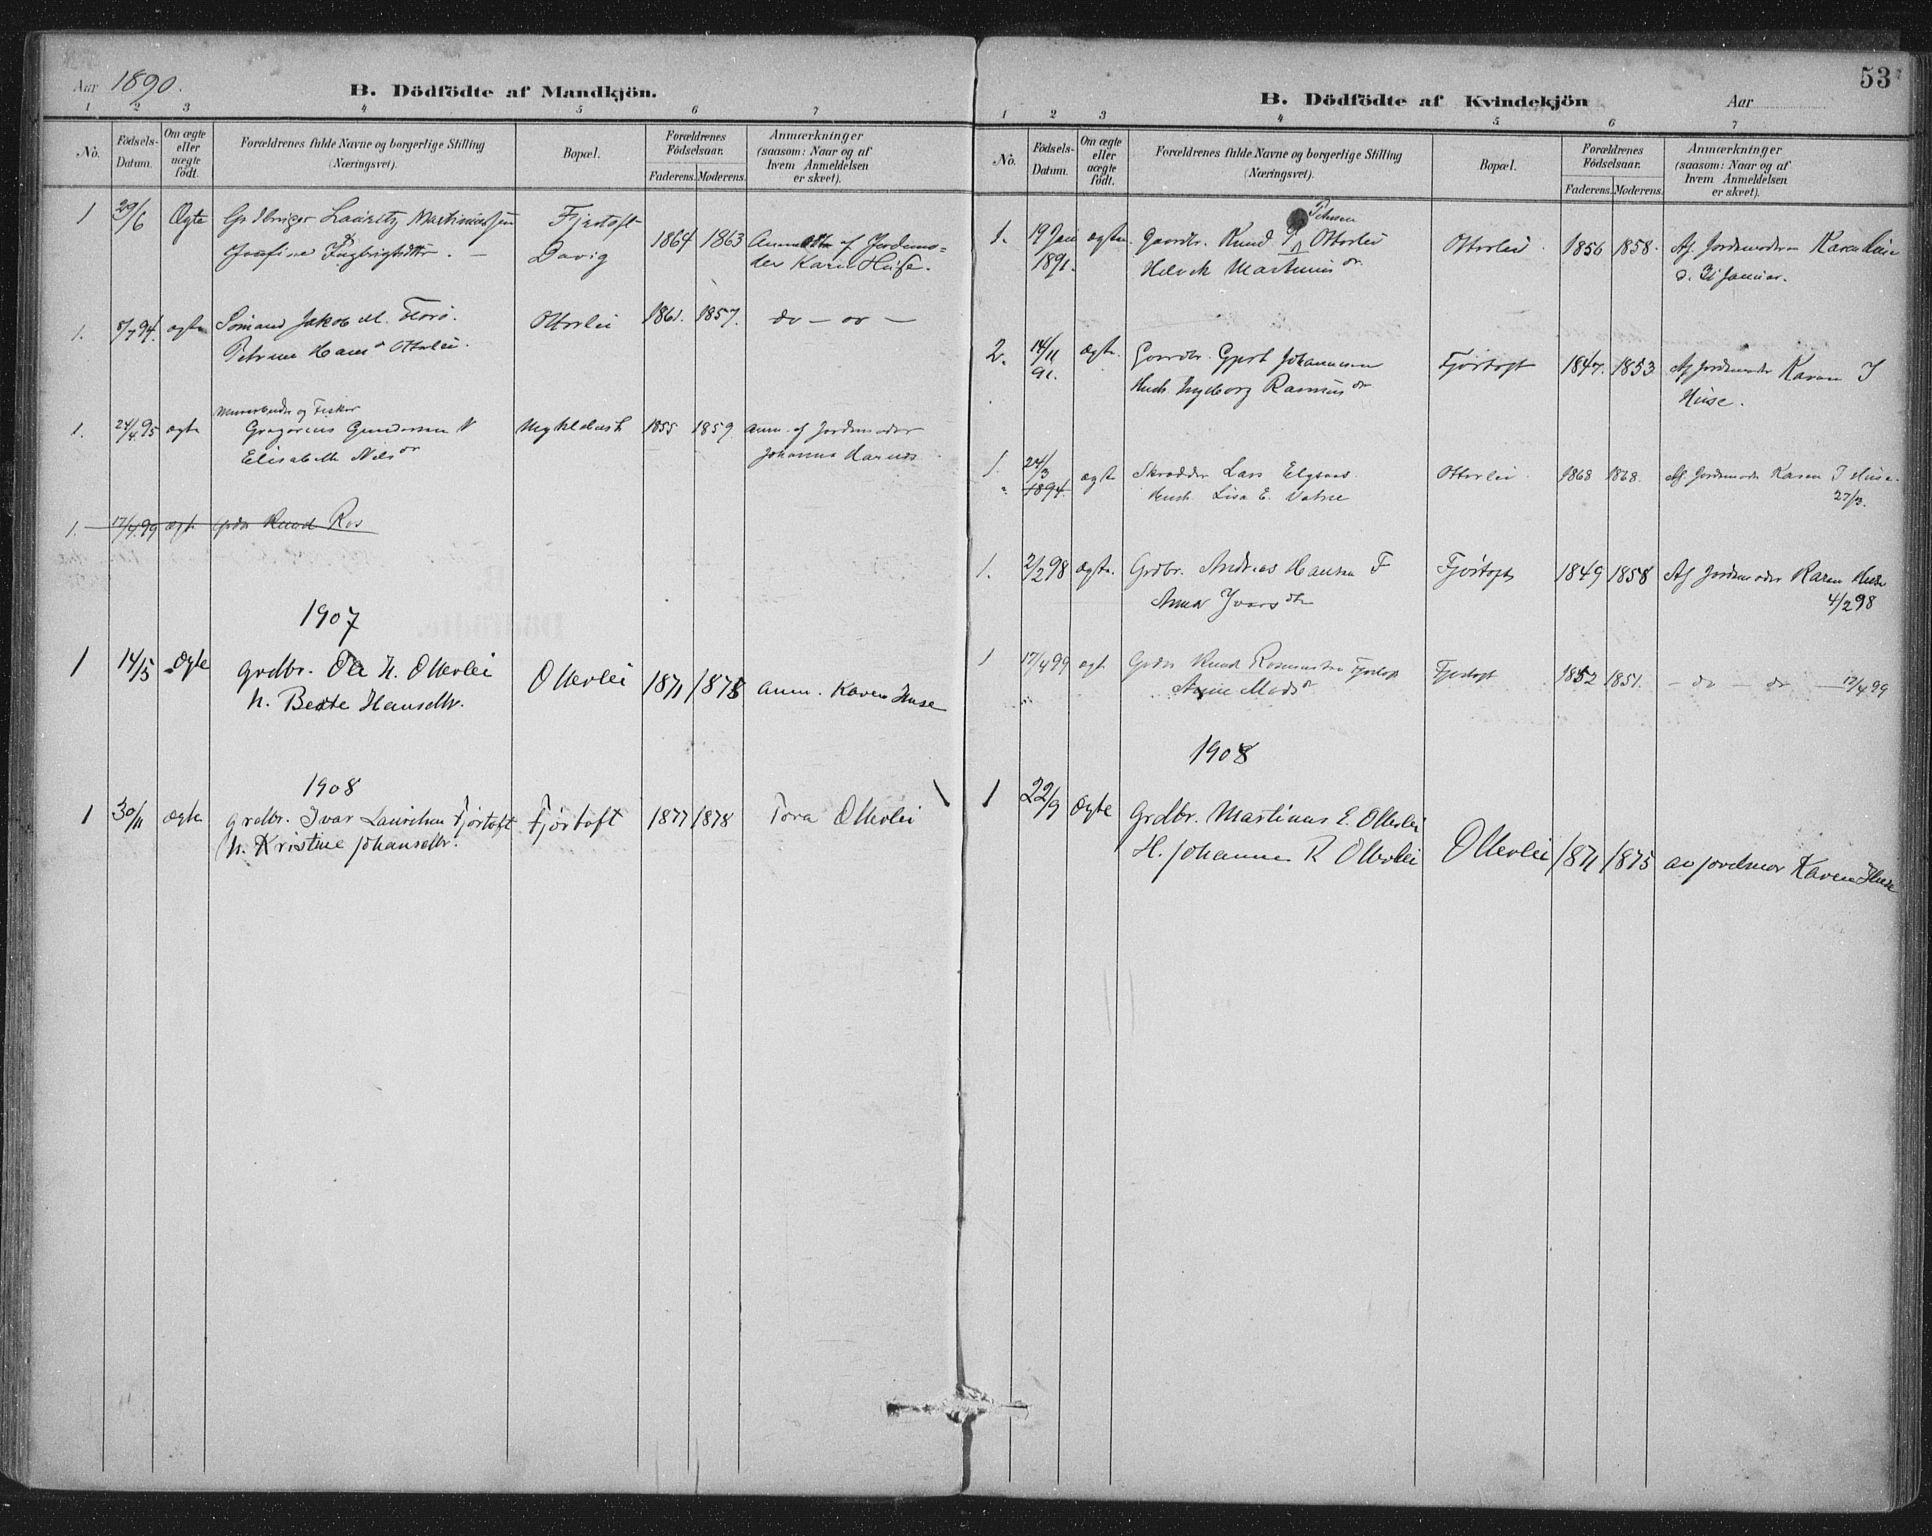 Aar 1890.
B. Dödfödte af Mandkjön.
1 2 3 4 5 6 7
No.
Födsels-Datum.
Om ægte eller uægte födt.
Forældrenes fulde Navne og borgerlige Stilling (Næringsvei).
Bopæl.
Forældrenes Födselsaar.
Faderens. Moderens.
Anmærkninger (saasom: Naar og af hvem Anmeldelsen er skeet).
1 29/6 Ægte Grdbruger Lauritz Martinussen Fjrtoft 1864 1863 Anm af Jordemo-
Josefine Ingbrigtsdtr. — Davig der Karen Huse.
1. 8/7 94. ægte Sömand Jakob M. Florö. Otterlei 1861. 1857. do — do —
Petrine Hans dr Otterlei.
Murarbeider og Fisker
1. 24/4.95 ægte Gregorius Gundersen N Myklebust 1855 1859 anm. af Jordemoder
Elisabeth Nils dr Johanna Harnes
1. 17/4.99 ægte Grdbr Knud Ros
1907
1 14/5 Ægte grdbr. Ole H. Otterlei Otterlei 1871 1878 anm. Karen Huse
h. Berte Hansdtr.
1908
1 30/11 Ægte grdbr. Ivar Lauritsen Fjörtoft Fjörtoft 1877 1878 Tora Otterlei
h. Kristine Johansdtr.
53
B. Dödfödte af Kvindekjön
Aar
1 2 3 4 5 6 7
No.
Födsels-Datum.
Om ægte eller uægte födt.
Forældrenes fulde Navne og borgerlige Stilling (Næringsvei).
Bopæl.
Forældrenes Födselsaar.
Faderens. Moderens.
Anmærkninger (saasom: Naar og af hvem Anmeldelsen er skeet).
Petersen
1. 19 Jan ægte. Gaardbr. Knud P. Otterlei Otterlei. 1856 1858. Af Jordemoderen Karen Huse
1891. Martinus dr d. 21 Januar.
2. 14/11 ægte. Gaardbr. Gjert Johannesen Fjørtoft 1847. 1853 Af Jordemoder Karen I
91. Hust. Ingeborg Rasmus dr Huse.
1. 24/3 ægte Skrædder Lars Otterlei 1868 1868. Af Jordemoder Karen I Huse
1894. Hust. Lisa E. Vatne 27/3.
1. 2/2 98 ægte. Grdbr. Andreas Hansen F Fjörtoft 1849 1858 Af Jordemoder Karen Huse
Anna Ivars dtr 4/2 98
1 17/4 99 ægte Grdbr Knud Rasmussen Fjørtoft Fjørtoft 1852 1851. — do — do — 17/4 99
Anne Mads dr
1908
1 22/9 Ægte Grdbr. Martinus E. Otterlei
H. Johanne R Otterlei Otterlei 1871 1875 av jordmor Karen Huse